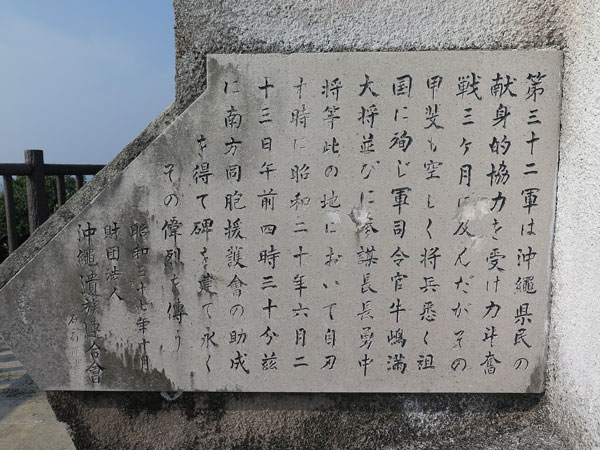 第三十二軍は沖縄県民の
献身的協力を受け力斗奮
戦三ヶ月に及んだがその
甲斐も空しく将兵悉く祖
国に殉じ軍司令官牛嶋満
大将並びに参謀長長勇中
将等此の地において自刃
す時に昭和二十年六月二
十三日午前四時三十分茲
に南方同胞援護會の助成
を得て碑を建て永く
その偉烈を傳う
昭和三十七年十月
財団法人
沖縄遺族連合會